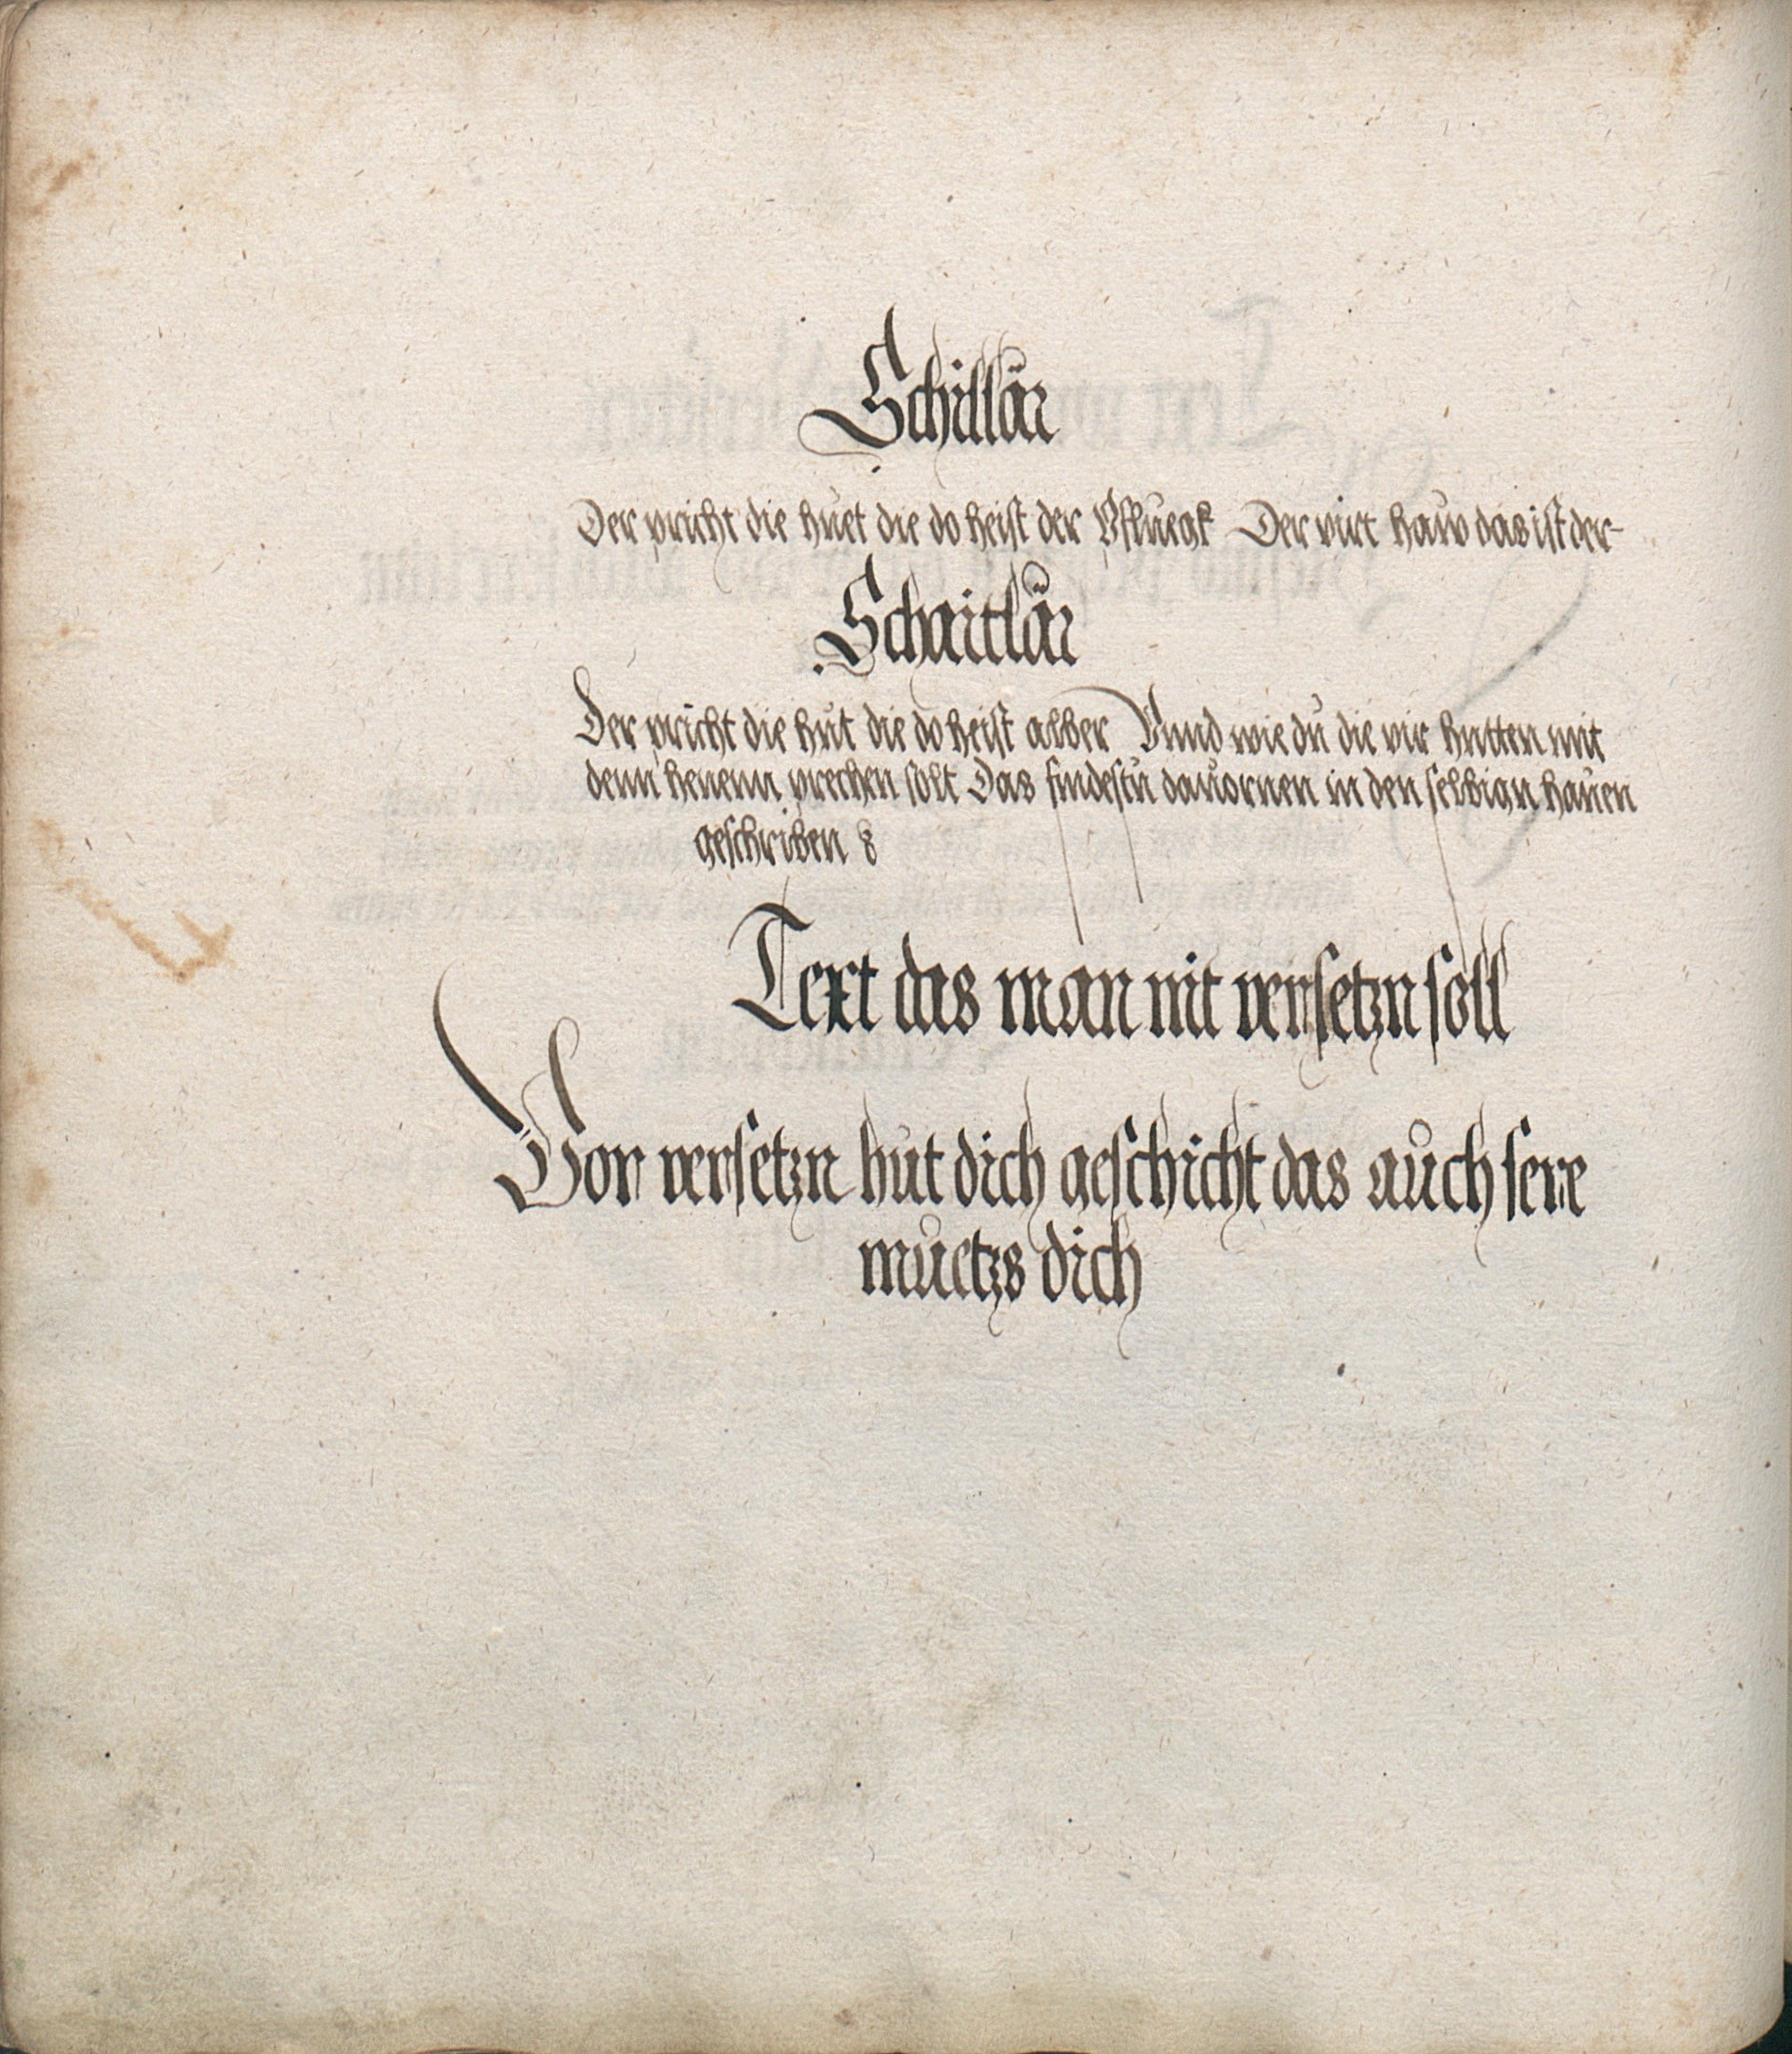 Schillär
Der pricht die huet die do heist der Pfluegk Der virt haw das ist der-
Schaitlär
Der pricht die hut die do heist alber Vnnd wie du die vir hutten mit
denn henenn prechen solt Das findestu dauornen in den selbign hauen
geschriben
Text das man nit versetzn soll
Vor versetzn hut dich geschicht das auch sere
muetzs dich